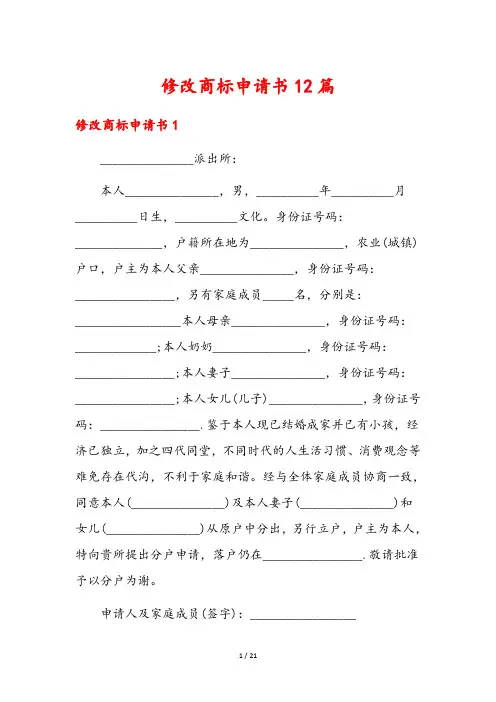 修改商标申请书12篇
修改商标申请书1
_______________派出所:
本人_______________,男,__________年__________月
__________日生,__________文化。身份证号码:
______________,户籍所在地为_______________,农业(城镇)
户口,户主为本人父亲_______________,身份证号码:
________________,另有家庭成员_____名,分别是:
_________________本人母亲_______________,身份证号码:
_____________;本人奶奶_______________,身份证号码:
________________;本人妻子_______________,身份证号码:
________________;本人女儿(儿子)_______________,身份证号
码:________________.鉴于本人现已结婚成家并已有小孩,经
济已独立,加之四代同堂,不同时代的人生活习惯、消费观念等
难免存在代沟,不利于家庭和谐。经与全体家庭成员协商一致,
同意本人(_______________)及本人妻子(_______________)和
女儿(_______________)从原户中分出,另行立户,户主为本人,
特向贵所提出分户申请,落户仍在________________.敬请批准
予以分户为谢。
申请人及家庭成员(签字):_________________
1 / 21